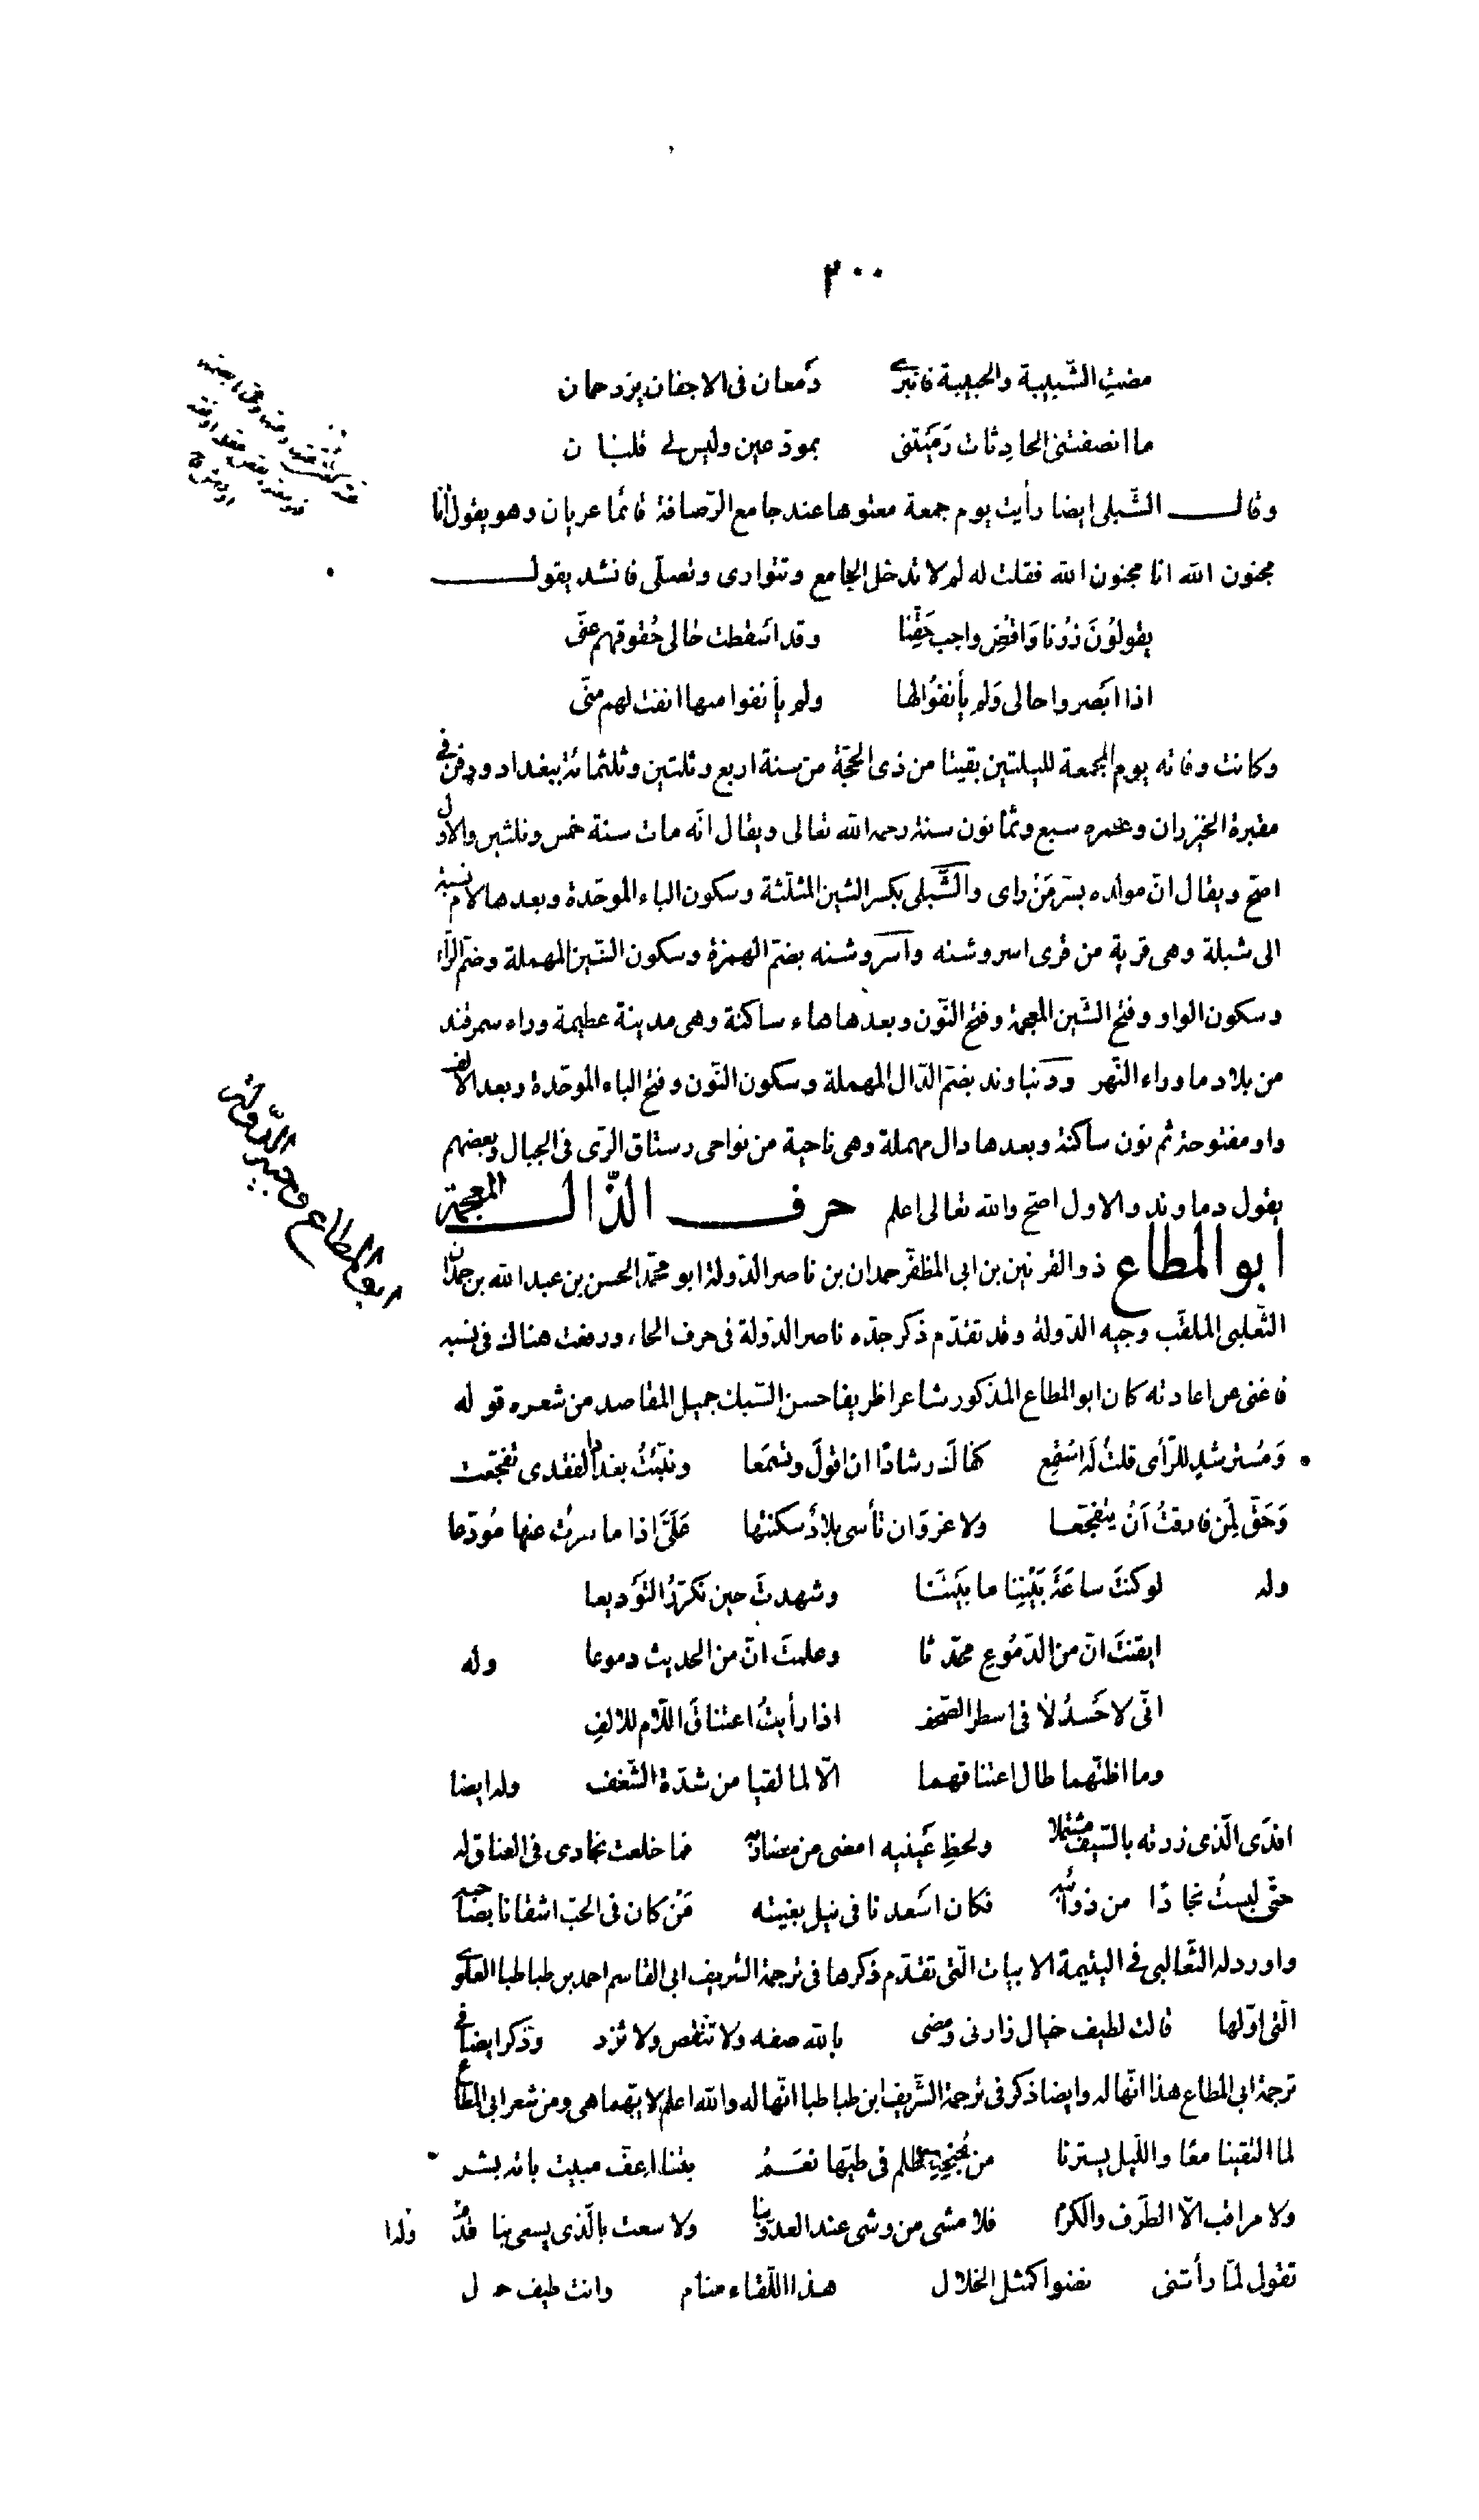 ٢٠٠
مضتِ الشّبيبة والحبيبة فانبرى دَمعان فى الاجفان يزدحمان
ما انصفتنى الحادِثات رَمَيْتَنى بمودعين وليس لى قلبان
وقال الشّبلى ايضا رأيت يوم جمعة معتوها عند جامع الرّصافة قائما عريان وهو يقول انا
مجنون الله انا مجنون الله فقلت له لم لا تدخل الجامع وتتوارى وتصلّى فانشد يقول
يقولُونَ زُرْنا وَاقْضِ واجب حَقِّنا وقد اسْقطت حالى حُقوقهم عنّى
اذا ابَصروا حالى وَلم يأنفوُا لها ولم يأنفوا منها انفت لهم منّى
وكانت وفاته يوم الجمعة لليلتين بقيتا من ذى الحجّة من سنة اربع وثلثين وثلثمائة ببغداد ودفن فى
مقبرة الخيزران وعمره سبع وثمانون سنة رحمه الله تعالى ويقال انّه مات سنة خمس وثلثين والاول
اصحّ ويقال انّ مولده بسرّ مَنْ راى والشّبلى بكسر الشين المثلّثة وسكون الباء الموحّدة وبعدها لام نسبة
الى شبلة وهى قرية من قرى اسروشنه واسروشنه بضم الهمزة وسكون السّين المهملة وضمّ الرّاء
وسكون الواو وفتح الشّين المعجمة وفتح النّون وبعدها هاء ساكنة وهى مدينة عظيمة وراء سمرقند
من بلاد ما وراء النّهر ودنباوند بضم الدّال المهملة وسكون النّون وفتح الباء الموحّدة وبعد الالف
واو مفتوحة ثم نون ساكنة وبعدها دال مهملة وهى ناحية من نواحى رستاق الرّى فى الجبال وبعضهم
يقول دماوند والاول اصحّ والله تعالى اعلم حرف الذّال المعجمة
أبو المطاع ذو القرنين بن ابى المظفّر حمدان بن ناصر الدّولة ابو محمّد الحسن بن عبد الله بن حمدان
التّغلبى الملقّب وجيه الدّولة وقد تقدّم ذكر جدّه ناصر الدّولة فى حرف الحاء ورفعت هناك فى نسبه
فاغنى عن اعادته كان ابو المطاع المذكور شاعرا ظريفا حسن السّبك جميل المقاصد من شعره قوله
وَمُسترشدٍ للرّأى قلتُ لَه اسْتَمِع كفا لك رشادًا ان اقولَ وتسْمَعا ونبّئتُ بغداد لفقدى تفجّعت
وَحَقّ لِمَن فارقتُ اَنْ يتفجّعا ولا غروَ ان تأسى بلادٌ سكنتها عَلَىَّ اذا ما سرتُ عنها مُودّعا
وله لو كنتَ ساعَةَ بَيْنِنا ما بَيْنَنا وشهدتَ حين نُكرّرُ التوَديعا
ايقنتَ انّ من الدّمُوعِ محدّثا وعلمتَ انّ من الحديث دموعا وله
انّى لاحَسدُ لا فى اسطر الصّحف اذا رأيتُ اعتناقَ اللّام للالفِ
وما اظنّهما طال اعتناقهما الّا لما لقيا من شدّة الشّغف وله ايضا
افدّى الّذى زرته بالسّيف مشتملا ولحظِ عَينيه امضى من مضاربه فما خلعت نجادى فى العناق له
حتّى لبستُ نجادًا من ذوائبه فكان اسَعدنا فى نيل بغيته مَنْ كان فى الحبّ اشقانا بصاحبه
واورد له الثّعالبى فى اليتيمة الابيات الّتى تقدّم ذكرها فى ترجمة الشريف ابى القاسم احمد بن طباطبا العلوى
الّتى اوّلها قالت لطيف خيال زارنى ومضى بالله صفه ولا تنقص ولا تزد وذكر ايضا فى
ترجمة ابى المطاع هذا انّها له وايضا ذكر فى ترجمة الشّريف ابن طباطبا انّها له والله اعلم لايّهما هى ومن شعر ابى المطاع
لما التقينا معًا واللّيل يسترنا من جُنحِه ظلم فى طيّها نعَمُ بتنا اعفّ مبيت باته بشر
ولا مراقب الّا الطّرف والكرم فلا مشى من وشى عند العدوّ بنا ولا سعت بالّذى يسعى بنا قدم وله
تقول لمّا رأتنى نضوا كمثل الخلال هذا اللّقاء منام وانت طيف
ابو المطاع وجيه الدّولة